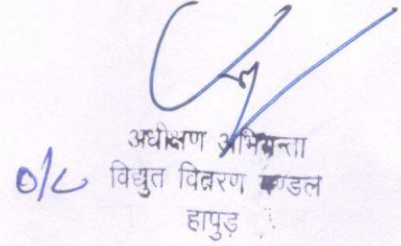 अधीक्षण अभियन्ता
o/c विद्युत वितरण मण्डल
हापुड़